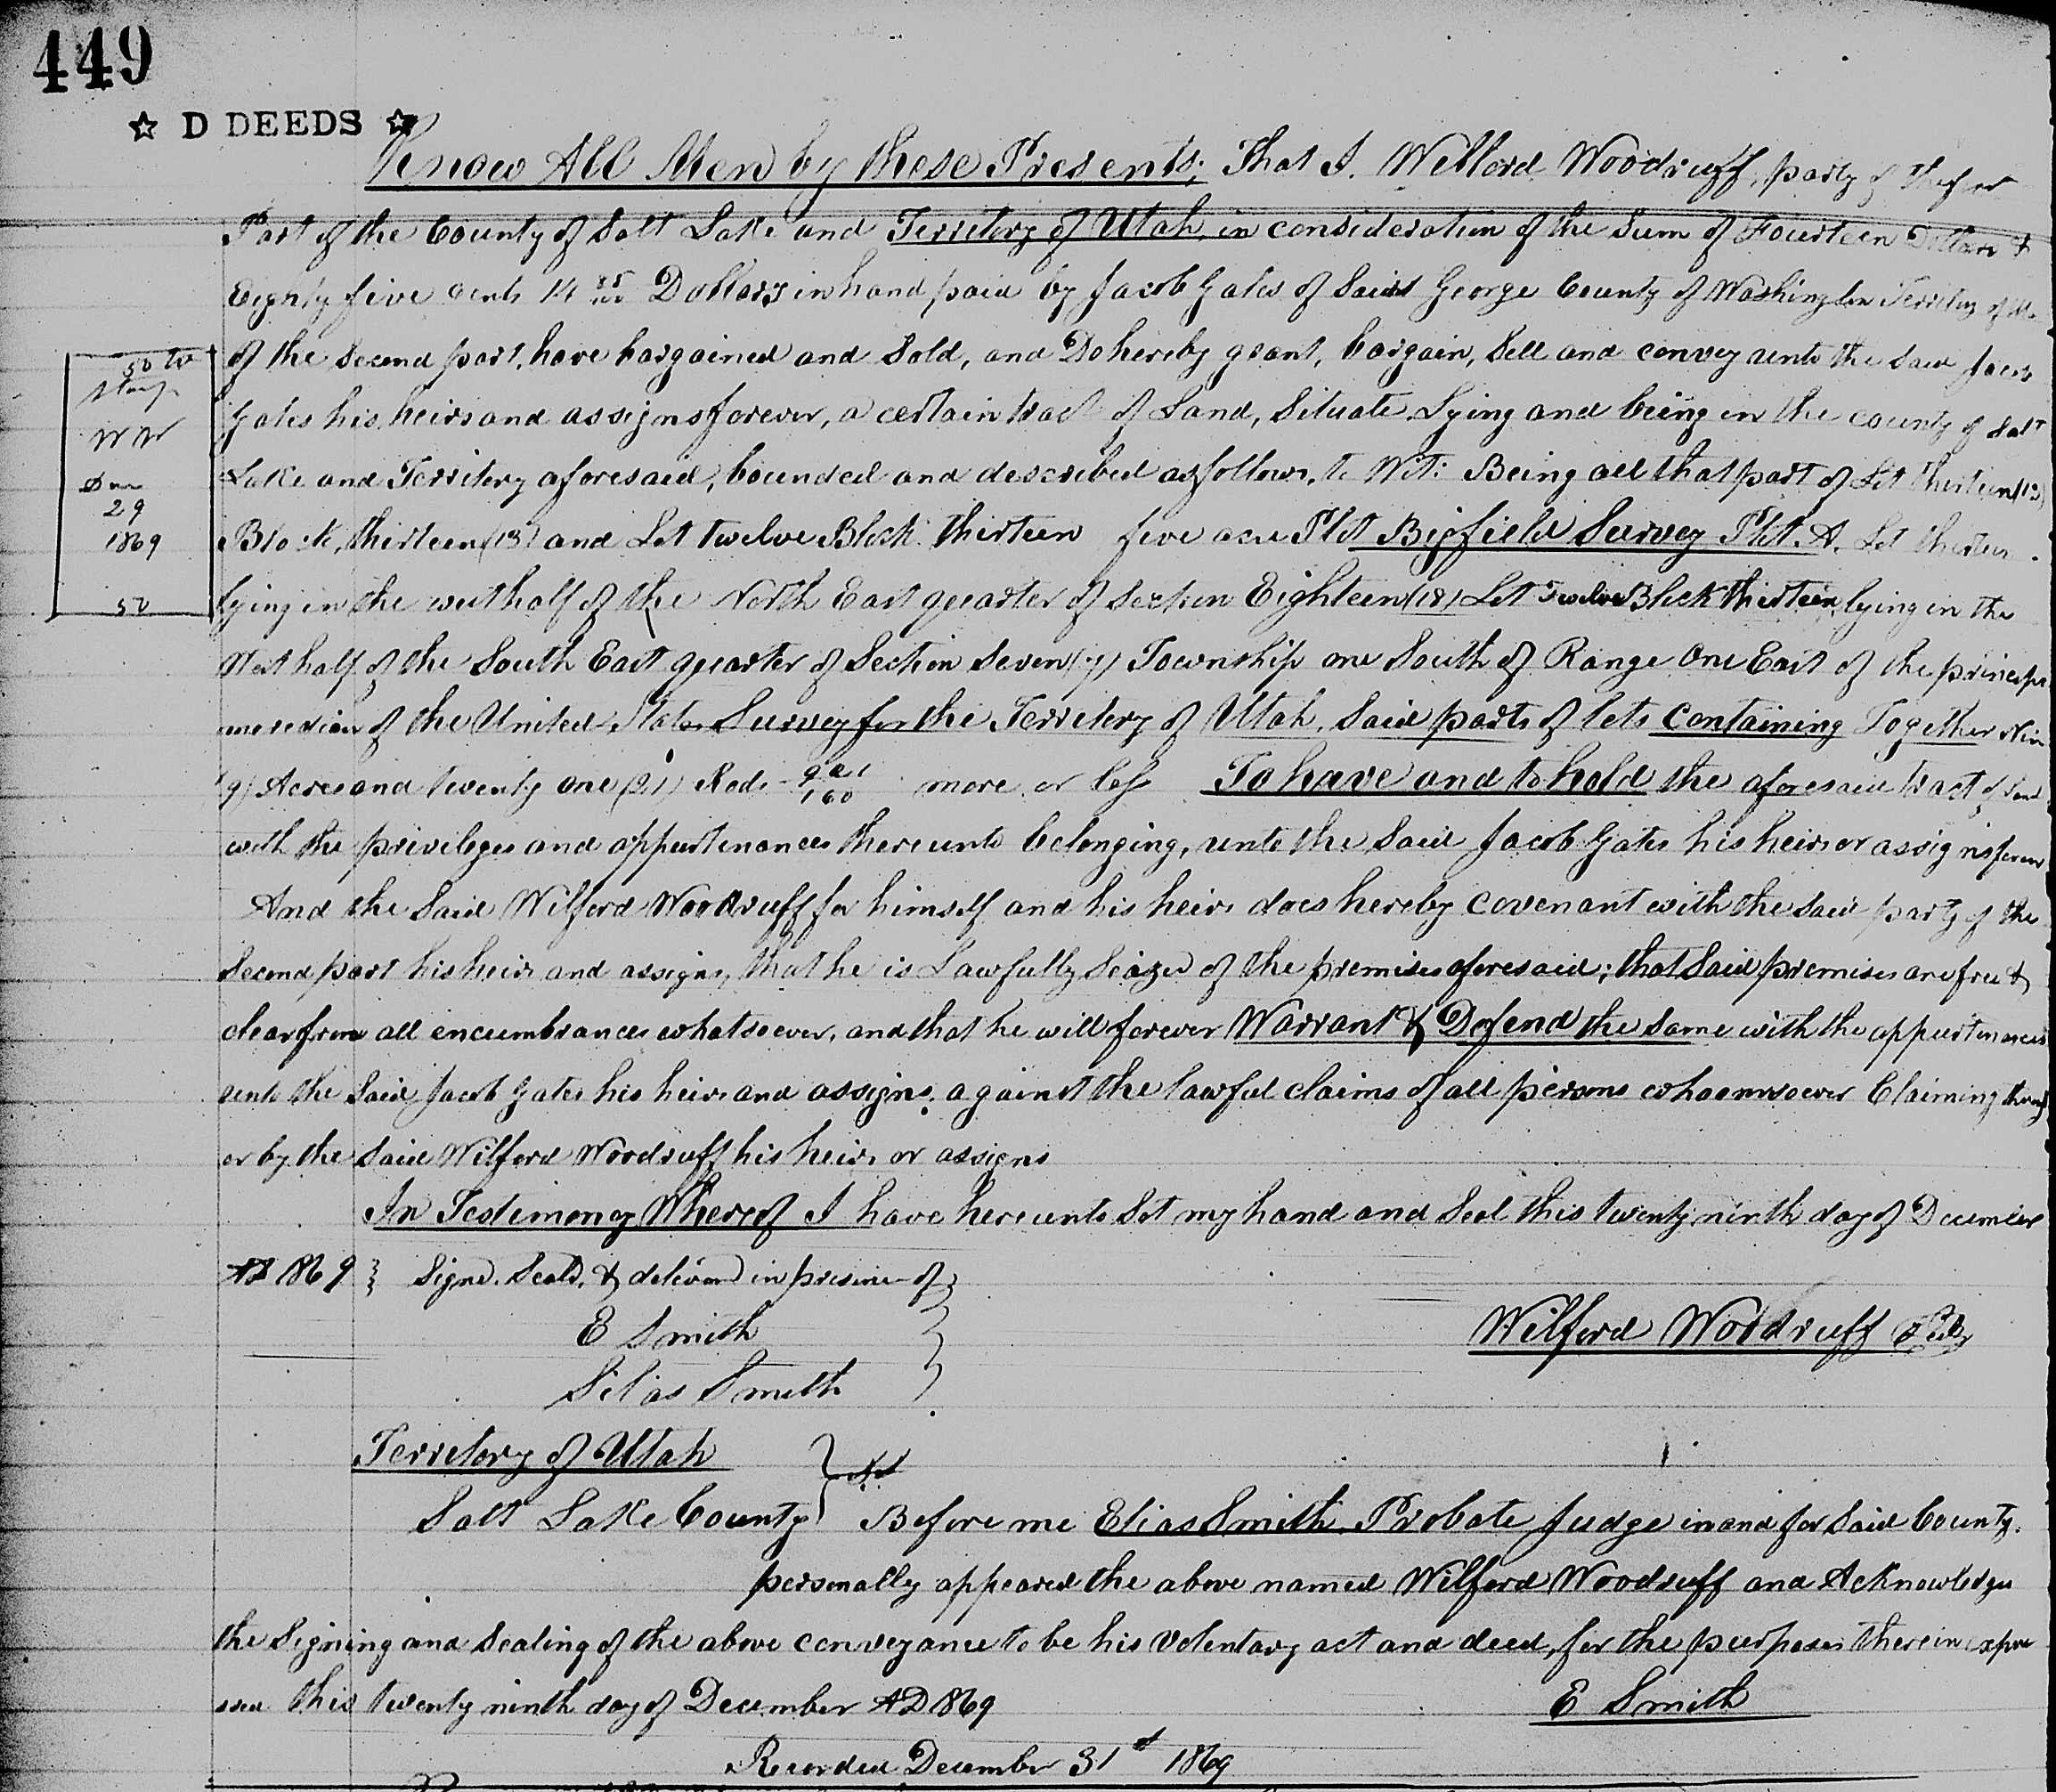 449
☆ D DEEDS ☆
Know All Men by these Presents; That I. Willord Woodruff, party of the
Part of the County of Salt Lake and Territory of Utah, in consideration of the Sum of Fourteen Dollars &
Eighty five cents 14 85/100 Dollars in hand paid by Jacob Gates of Saint George County of Washington Territory of
of the Second part, have bargained and Sold, and Do hereby grant, bargain, Sell and convey unto the Said Jacob
Gates his, heirs and assigns forever, a certain tract of Land, Situate Lying and being in the county of Salt
Lake and Territory aforesaid, bounded and described as follows, to Wit: Being all that part of Lot Thirteen (13)
Block, thirteen (13) and Lot twelve Block thirteen five acre Plot Bigfield Survey Plot. A. Lot thirteen
lying in the west half of the North East quarter of Section Eighteen (18) Lot Twelve Block thirteen, lying in the
West half of the South East quarter of Section Seven (7) Township one South of Range One East of the
meredian of the United States Survey for the Territory of Utah, Said parts of lots containing Together
9) Acres and twenty one (21) Rods 9 21/160 more or less To have and to hold the aforesaid tract of Land
with the privileges and appurtenances thereunto belonging, unto the Said Jacob Gates his heirs or assigns forever
And the Said Wilford Woodruff for himself and his heirs does hereby covenant with the Said party of the
Second part his heirs and assigns, that he is Lawfully Seized of the premises aforesaid; that Said premises are free &
clear from all encumbrances whatsoever, and that he will forever Warrant & Defend the same with the appurtenances
unto the Said Jacob Gates his heirs and assigns, against the lawful claims of all persons whomsoever Claiming
or by the Said Wilford Woodruff his heirs or assigns
In Testimony Whereof I have hereunto Set my hand and Seal this twenty ninth day of December
AD 1869 } Signed. Seald. & delivered in presence of }
E Smith
Wilford Woodruff
Silas Smith
50
stamp
WW
Dec
29
1869
50
Territory of Utah
Salt Lake County } Before me Elias Smith, Probate Judge in and for Said County.
personally appeared the above named Wilford Woodruff and Acknowledges
the Signing and Sealing of the above conveyance to be his Volentary act and deed, for the purposes therein expre
ssed this twenty ninth day of December AD 1869
E Smith
Recorded December 31st 1869